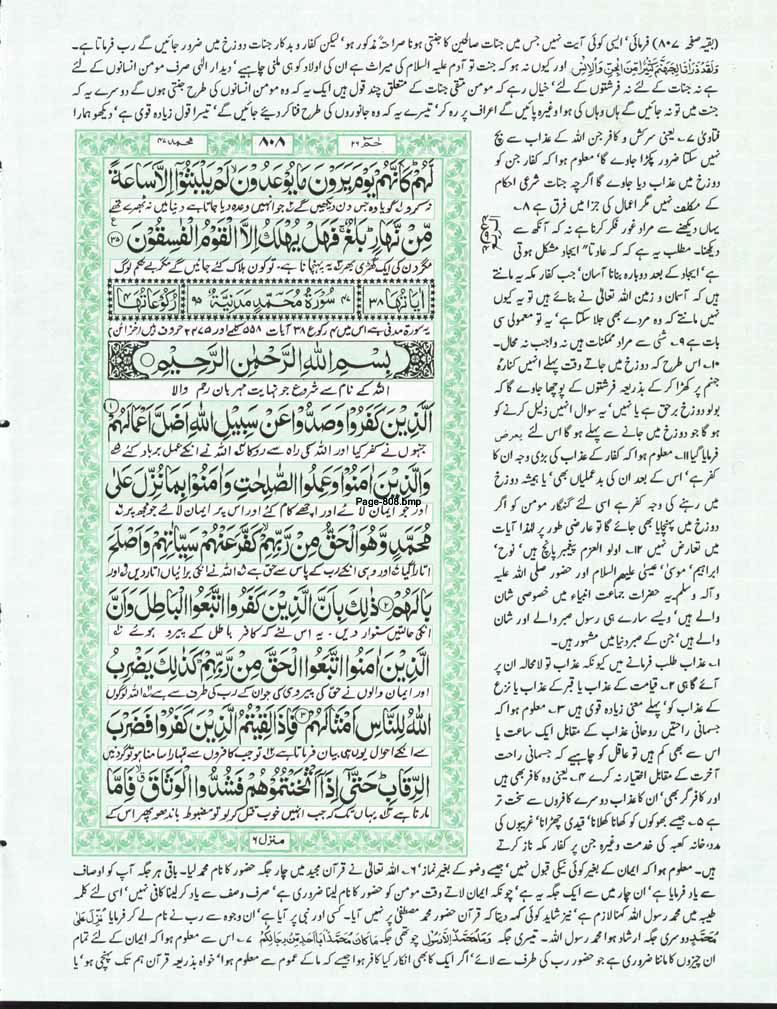 (بقیہ صفحہ ۸۰۷) فرمائی' ایسی کوئی آیت نہیں جس میں جنات صالحین کا جنتی ہونا صراحتہً مذکور ہو' لیکن کفار و بدکار جنات دوزخ میں ضرور جائیں گے رب فرماتا ہے۔
وَلَقَدْ ذَرَأْنَا لِجَهَنَّمَ كَثِيرًا مِّنَ الْجِنِّ وَالْإِنْسِ اور کیوں نہ ہو کہ جنت تو آدم علیہ السلام کی میراث ہے ان کی اولاد کو ہی ملنی چاہیے' دیدار الٰہی صرف مومن انسانوں کے لئے
ہے نہ جنات کے لئے نہ فرشتوں کے لئے' خیال رہے کہ مومن متقی جنات کے متعلق چند قول ہیں ایک یہ کہ وہ مومن انسانوں کی طرح جنتی ہوں گے دوسرے یہ کہ
جنت میں تو نہ جائیں گے ہاں وہاں کی ہوا وغیرہ پائیں گے اعراف پر رہ کر' تیسرے یہ کہ وہ جانوروں کی طرح فنا کر دیئے جائیں گے' تیسرا قول زیادہ قوی ہے' دیکھو ہمارا
فتاویٰ ۷۔ یعنی سرکش و کافر جن اللہ کے عذاب سے بچ
نہیں سکتا ضرور پکڑا جاوے گا' معلوم ہوا کہ کافر جن کو
دوزخ میں عذاب دیا جاوے گا اگرچہ جنات شرعی احکام
کے مکلف نہیں مگر اعمال کی جزا میں فرق ہے ۸۔
یہاں دیکھنے سے مراد غور فکر کرنا ہے نہ کہ آنکھ سے
دیکھنا۔ مطلب یہ ہے کہ عادتاً ایجاد مشکل ہوتی
ہے' ایجاد کے بعد دوبارہ بنانا آسان' جب کفار مکہ یہ مانتے
ہیں کہ آسمان و زمین اللہ تعالیٰ نے بنائے ہیں تو یہ کیوں
نہیں مانتے کہ وہ مردے بھی جلا سکتا ہے' یہ تو معمولی سی
بات ہے ۹۔ شئی سے مراد ممکنات ہیں نہ واجب نہ محال۔
۱۰۔ اس طرح کہ دوزخ میں جاتے وقت پہلے انہیں کنارہ
جہنم پر کھڑا کر کے بذریعہ فرشتوں کے پوچھا جاوے گا کہ
بولو دوزخ برحق ہے یا نہیں' یہ سوال انہیں ذلیل کرنے کو
ہو گا جو دوزخ میں جانے سے پہلے ہو گا اس لئے یعرض
فرمایا گیا ۱۱۔ معلوم ہوا کہ کفار کے عذاب کی بڑی وجہ ان کا
کفر ہے' اس کے بعد ان کی بدعملیاں بھی' یا ہمیشہ دوزخ
میں رہنے کی وجہ کفر ہے اسی لئے گنہگار مومن کو اگر
دوزخ میں پہنچایا بھی جائے گا تو عارضی طور پر لہٰذا آیات
میں تعارض نہیں ۱۲۔ اولو العزم پیغمبر پانچ ہیں' نوح'
ابراہیم' موسیٰ' عیسیٰ علیہم السلام اور حضور صلی اللہ علیہ
و آلہ وسلم۔ یہ حضرات جماعت انبیاء میں خصوصی شان
والے ہیں' ویسے سارے ہی رسول صبر والے اور شان
والے ہیں' جن کے صبر دنیا میں مشہور ہیں۔
۱۔ عذاب طلب فرمانے میں کیونکہ عذاب تو لامحالہ ان پر
آئے گا ہی ۲۔ قیامت کے عذاب یا قبر کے عذاب یا نزع
کے عذاب کو' پہلے معنی زیادہ قوی ہیں ۳۔ معلوم ہوا کہ
جسمانی راحتیں روحانی عذاب کے مقابل ایک ساعت یا
اس سے بھی کم ہیں تو عاقل کو چاہیے کہ جسمانی راحت
آخرت کے مقابل اختیار نہ کرے ۴۔ یعنی وہ کافر بھی ہیں
اور کافر گر بھی' ان کا عذاب دوسرے کافروں سے سخت تر
ہے ۵۔ جیسے بھوکوں کو کھانا کھلانا' قیدی چھڑانا' غریبوں کی
مدد' خانہ کعبہ کی خدمت وغیرہ جن پر کفار مکہ ناز کرتے
حٰم ۲۶
۸۰۸
محمد ۴۷
لَّهُمْ كَأَنَّهُمْ يَوْمَ يَرَوْنَ مَا يُوعَدُونَ لَمْ يَلْبَثُوا إِلَّا سَاعَةً
نہ کرو گویا وہ جس دن دیکھیں گے جو انہیں وعدہ دیا جاتا ہے دنیا میں نہ ٹھہرے تھے
مِّن نَّهَارٍ بَلَاغٌ فَهَلْ يُهْلَكُ إِلَّا الْقَوْمُ الْفَاسِقُونَ ۳۵
مگر دن کی ایک گھڑی بھر یہ پہنچانا ہے۔ تو کون ہلاک کئے جائیں گے مگر بے حکم لوگ
اٰیَاتُهَا ۳۸ ۴۷ سُوْرَةُ مُحَمَّدٍ مَدَنِيَّةٌ ۹۵ رُكُوْعَاتُهَا ۴
یہ سورۃ مدنی ہے اس میں ۴ رکوع ۳۸ آیات ۵۵۸ کلمے اور ۲۴۷۵ حروف ہیں (خزائن)
بِسْمِ اللَّهِ الرَّحْمَٰنِ الرَّحِيمِ
اللہ کے نام سے شروع جو نہایت مہربان رحم والا
الَّذِينَ كَفَرُوا وَصَدُّوا عَن سَبِيلِ اللَّهِ أَضَلَّ أَعْمَالَهُمْ ۱
جنہوں نے کفر کیا اور اللہ کی راہ سے روکا اللہ نے انکے عمل برباد کئے
وَالَّذِينَ آمَنُوا وَعَمِلُوا الصَّالِحَاتِ وَآمَنُوا بِمَا نُزِّلَ عَلَىٰ
Page-808.bmp
اور جو ایمان لائے اور اچھے کام کئے اور اس پر ایمان لائے جو محمد پر
مُحَمَّدٍ وَهُوَ الْحَقُّ مِن رَّبِّهِمْ كَفَّرَ عَنْهُمْ سَيِّئَاتِهِمْ وَأَصْلَحَ
اتارا گیا اور وہی انکے رب کے پاس سے حق ہے اللہ نے انکی برائیاں اتار دیں اور
بَالَهُمْ ۲ ذَٰلِكَ بِأَنَّ الَّذِينَ كَفَرُوا اتَّبَعُوا الْبَاطِلَ وَأَنَّ
انکی حالتیں سنوار دیں۔ یہ اس لئے کہ کافر باطل کے پیرو ہوئے
الَّذِينَ آمَنُوا اتَّبَعُوا الْحَقَّ مِن رَّبِّهِمْ كَذَٰلِكَ يَضْرِبُ
اور ایمان والوں نے حق کی پیروی کی جو ان کے رب کی طرف سے ہے اللہ لوگوں
اللَّهُ لِلنَّاسِ أَمْثَالَهُمْ ۳ فَإِذَا لَقِيتُمُ الَّذِينَ كَفَرُوا فَضَرْبَ
سے انکے احوال یوں ہی بیان فرماتا ہے تو جب کافروں سے تمہارا سامنا ہو تو گردنیں
الرِّقَابِ حَتَّىٰ إِذَا أَثْخَنتُمُوهُمْ فَشُدُّوا الْوَثَاقَ فَإِمَّا
مارنا ہے یہاں تک کہ جب انہیں خوب قتل کر لو تو مضبوط باندھو پھر اس کے
منزل ۶
ہیں۔ معلوم ہوا کہ ایمان کے بغیر کوئی نیکی قبول نہیں' جیسے وضو کے بغیر نماز' ۶۔ اللہ تعالیٰ نے قرآن مجید میں چار جگہ حضور کا نام محمد لیا۔ باقی ہر جگہ آپ کو اوصاف
سے یاد فرمایا ہے' ان چار میں سے ایک جگہ یہ ہے' چونکہ ایمان لاتے وقت مومن کو حضور کا نام لینا ضروری ہے' صرف وصف سے یاد کر لینا کافی نہیں' اسی لئے کلمہ
طیبہ میں محمد رسول اللہ کہنا لازم ہے' نیز شاید کوئی کہہ دیتا کہ قرآن حضور محمد مصطفیٰ پر نہیں آیا۔ کسی اور نبی پر آیا ہے' ان وجوہ سے رب نے نام لے کر فرمایا نُزِّلَ عَلٰی
مُحَمَّدٍ دوسری جگہ ارشاد ہوا محمد رسول اللہ۔ تیسری جگہ وَمَا مُحَمَّدٌ إِلَّا رَسُولٌ چوتھی جگہ مَا كَانَ مُحَمَّدٌ أَبَا أَحَدٍ مِّن رِّجَالِكُمْ ۷۔ اس سے معلوم ہوا کہ ایمان کے لئے تمام
ان چیزوں کا ماننا ضروری ہے جو حضور رب کی طرف سے لائے' اگر ایک کا بھی انکار کیا کافر ہوا جیسے کہ ما کے عموم سے معلوم ہوا' خواہ بذریعہ قرآن ہم تک پہنچی ہو' یا